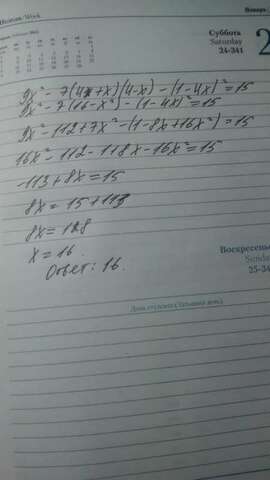 Январь
Суббота
Saturday
24-341
2
9x² - 7(4+x)(4-x) - (1-4x)² = 15
9x² - 7(16-x²) - (1-4x)² = 15
9x² - 112 + 7x² - (1-8x+16x²) = 15
16x² - 112 - 118x - 16x² = 15
-113 + 8x = 15
8x = 15 + 113
8x = 128
x = 16
Ответ: 16.
Воскресенье
Sunday
25-34
День студента (Татьянин день)